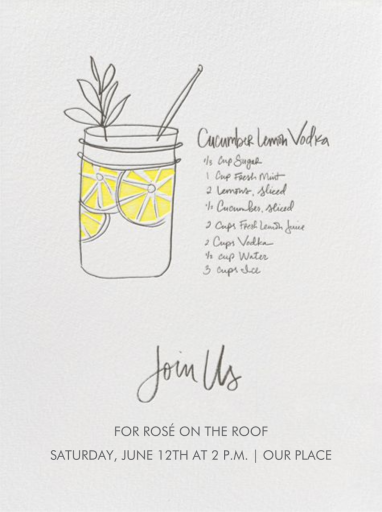 Cucumber Lemon Vodka
1/2 Cup Sugar
1 Cup Fresh Mint
2 Lemons, sliced
1/2 Cucumber, sliced
2 Cups Fresh Lemon Juice
2 Cups Vodka
1/2 cup Water
3 cups Ice
Join Us
FOR ROSÉ ON THE ROOF
SATURDAY, JUNE 12TH AT 2 P.M. | OUR PLACE